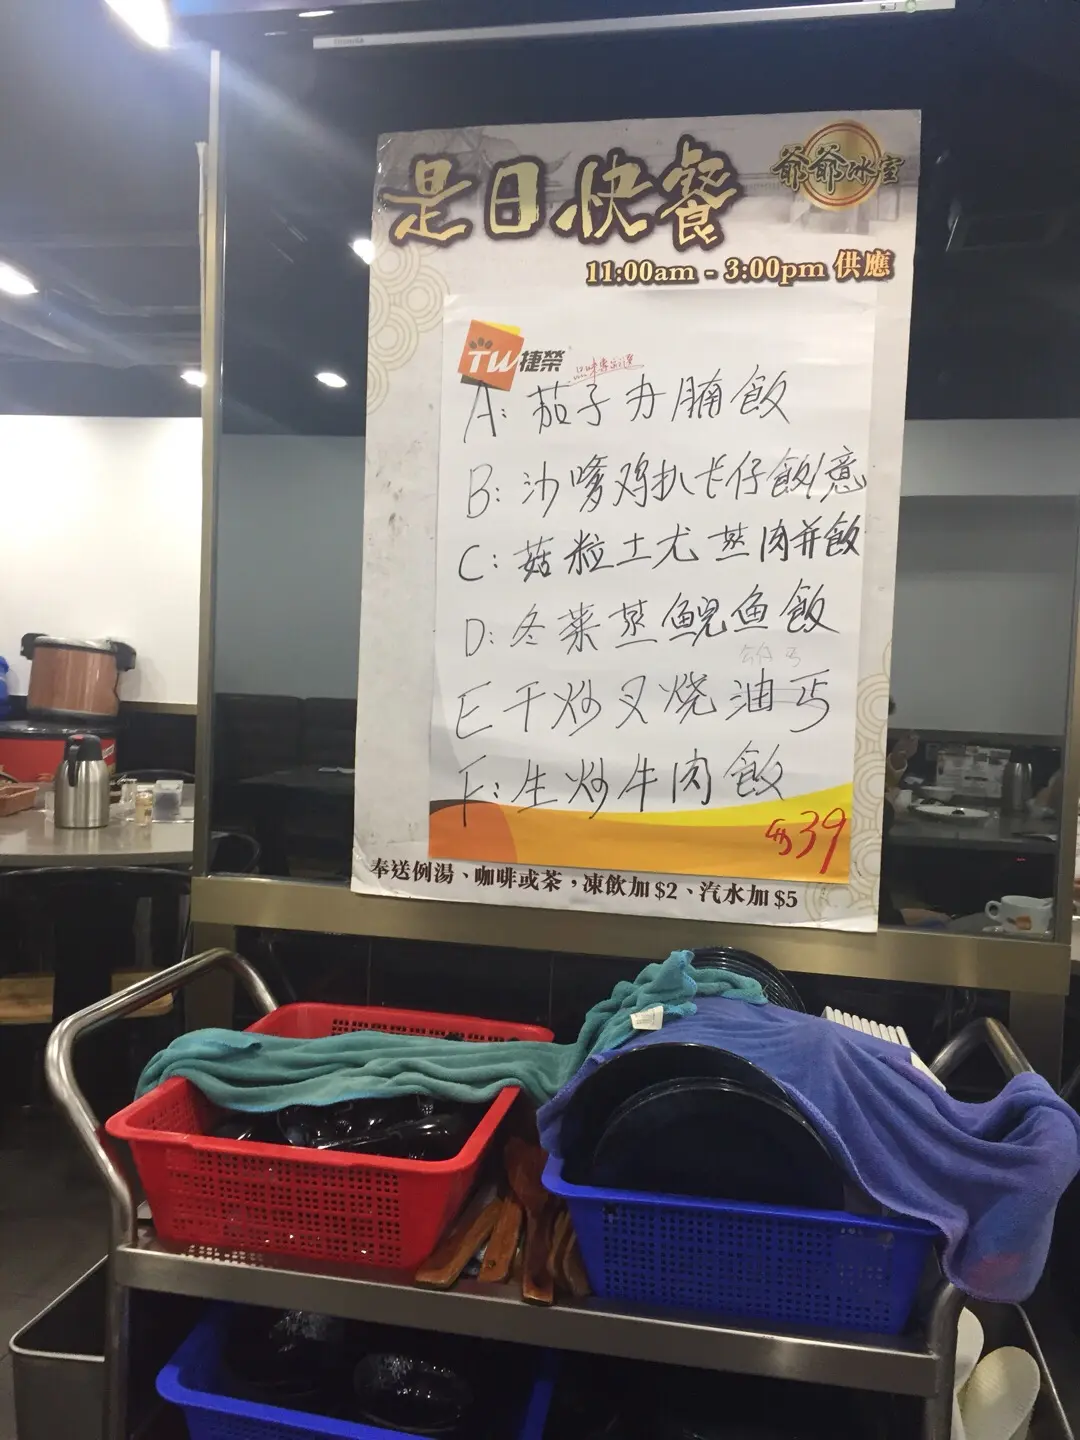 爺爺冰室
是日快餐
11:00am - 3:00pm 供應
TW捷榮
A: 茄子办腩飯
B: 沙嗲鸡扒卡仔飯/意
C: 菇粒土尤蒸肉并飯
D: 冬菜蒸鲩鱼飯
E 干炒叉烧油丐
F: 生炒牛肉飯
$39
奉送例湯、咖啡或茶，凍飲加$2、汽水加$5